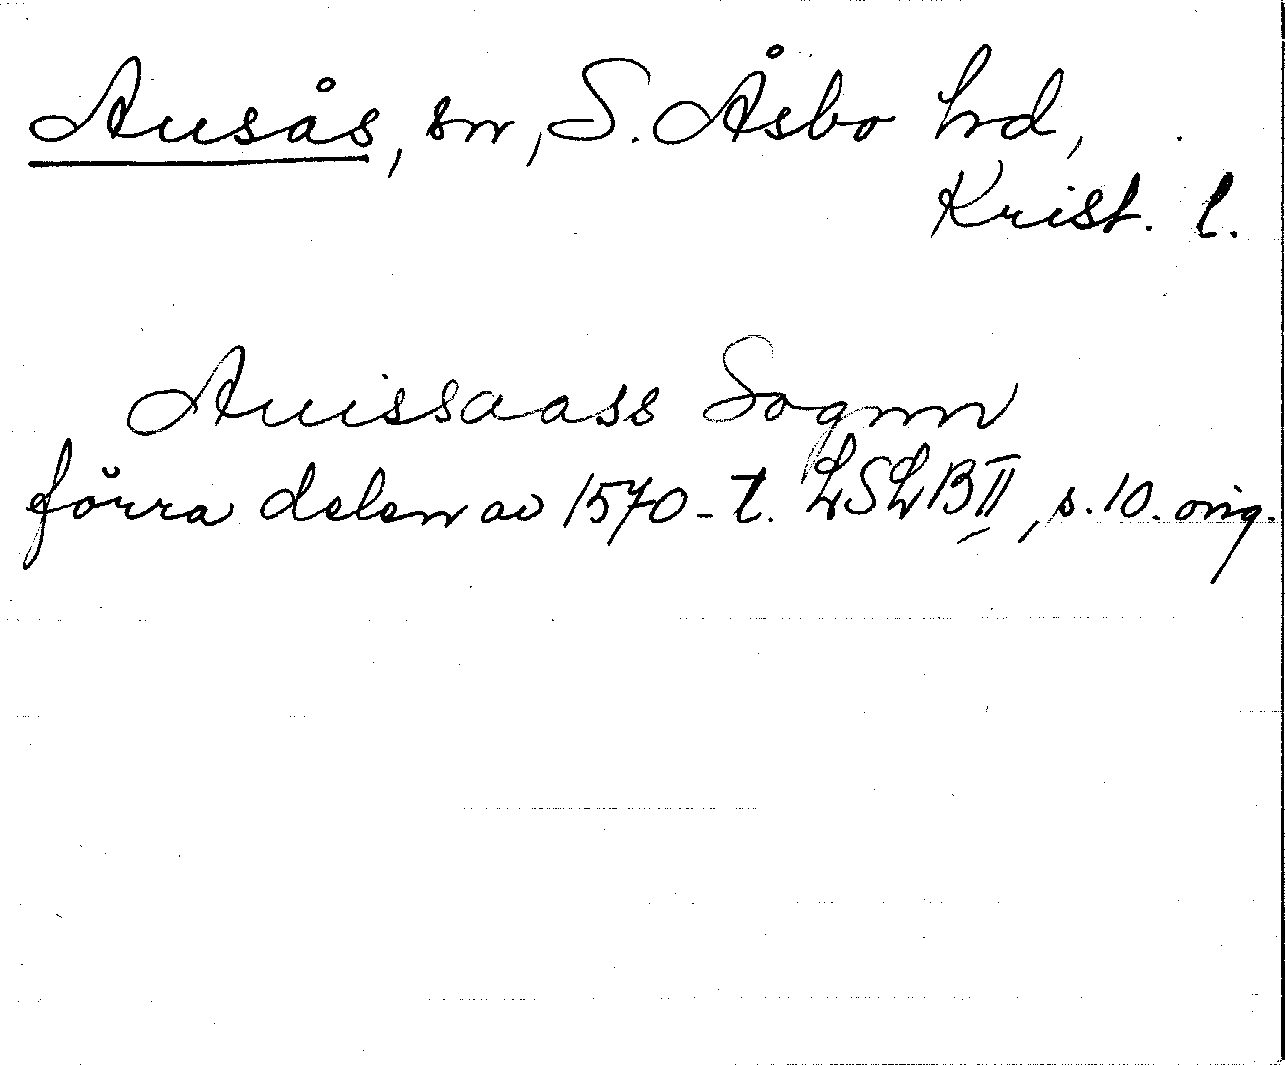 Ausås, sn, S. Åsbo hd,
Krist. l.
Auissaass Sognn
förra delen av 1570-t. LSLB II, s. 10. orig.